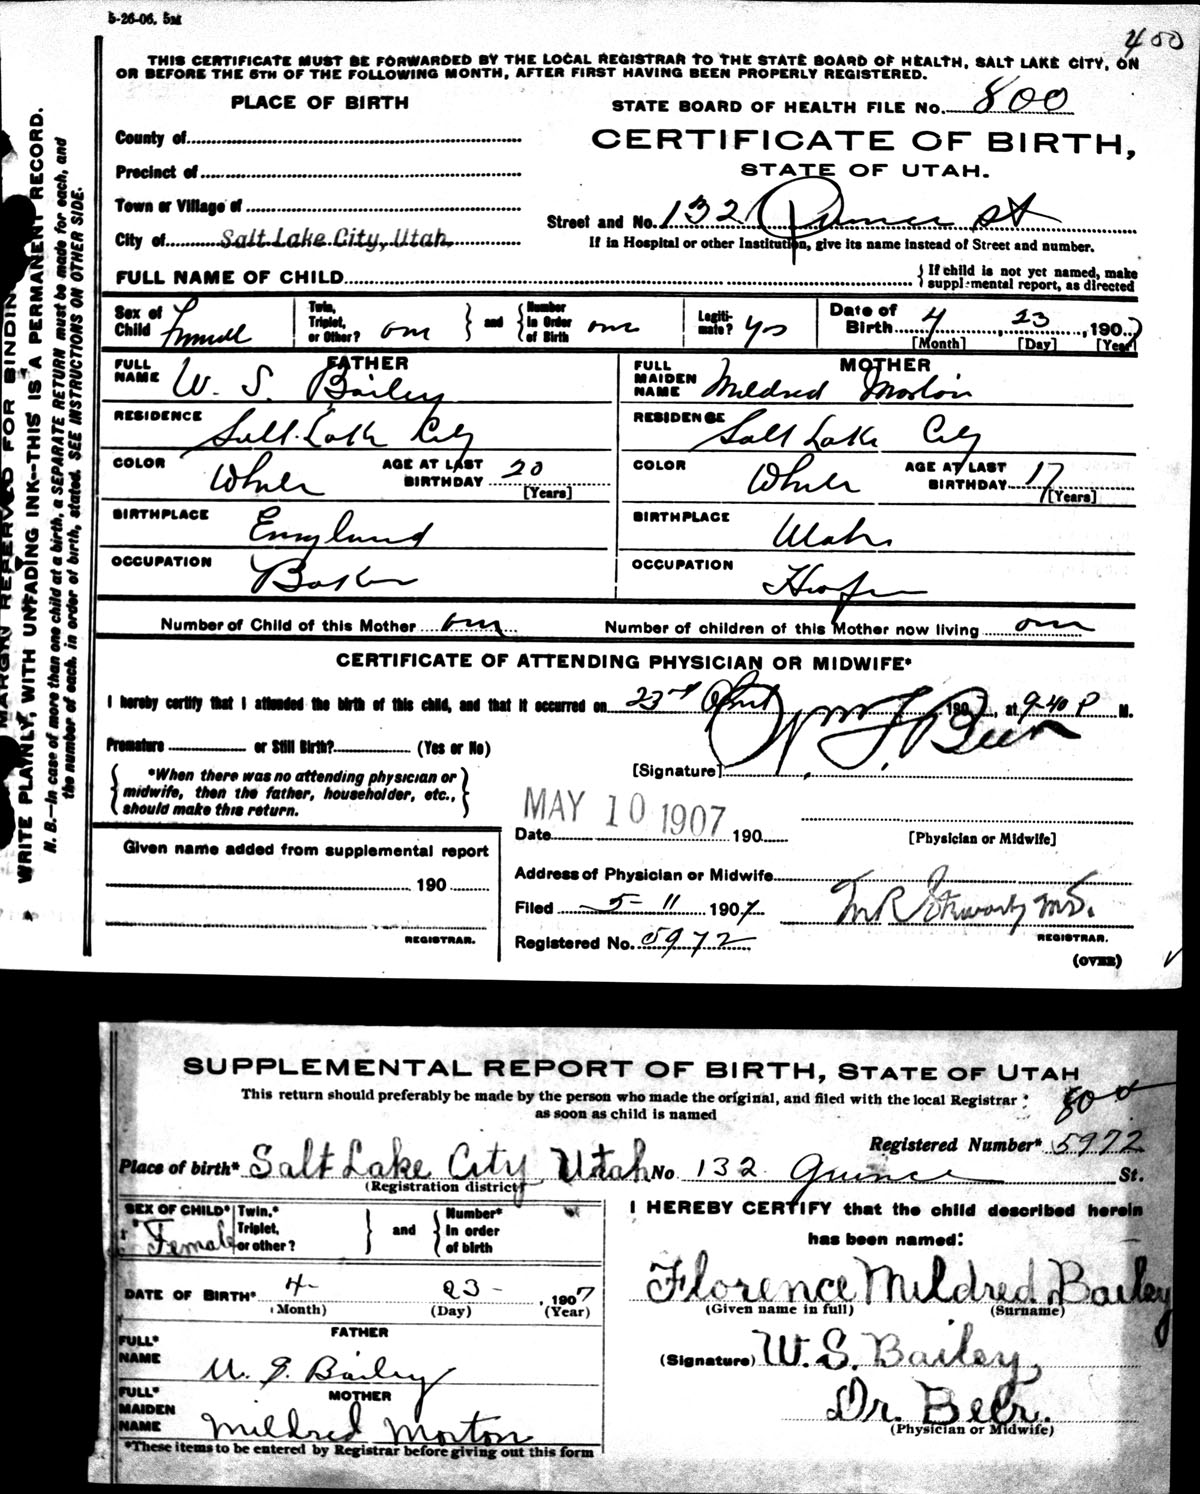 5-26-06. 5M
400
THIS CERTIFICATE MUST BE FORWARDED BY THE LOCAL REGISTRAR TO THE STATE BOARD OF HEALTH, SALT LAKE CITY, ON
OR BEFORE THE 5TH OF THE FOLLOWING MONTH, AFTER FIRST HAVING BEEN PROPERLY REGISTERED.
PLACE OF BIRTH
STATE BOARD OF HEALTH FILE No. 800
County of
CERTIFICATE OF BIRTH,
Precinct of
STATE OF UTAH.
Town or Village of
Street and No. 132 Quince st
City of Salt Lake City, Utah.
If in Hospital or other Institution, give its name instead of Street and number.
FULL NAME OF CHILD
{If child is not yet named, make supplemental report, as directed
Sex of Child Female
Twin, Triplet, or Other? one } and { Number in Order of Birth one
Legitimate? yes
Date of Birth 4 23, 1907
[Month] [Day] [Year]
FATHER
FULL NAME W. S. Bailey
MOTHER
FULL MAIDEN NAME Mildred Morton
RESIDENCE Salt Lake City
RESIDENCE Salt Lake City
COLOR White AGE AT LAST BIRTHDAY 20 [Years]
COLOR White AGE AT LAST BIRTHDAY 17 [Years]
BIRTHPLACE England
BIRTHPLACE Utah
OCCUPATION Baker
OCCUPATION
Number of Child of this Mother one Number of children of this Mother now living one
CERTIFICATE OF ATTENDING PHYSICIAN OR MIDWIFE*
I hereby certify that I attended the birth of this child, and that it occurred on 23rd April 190 , at 9-40 P M.
Premature or Still Birth? (Yes or No)
[Signature] Wm F. Beer
{*When there was no attending physician or midwife, then the father, householder, etc., should make this return.}
MAY 10 1907
Date 190
[Physician or Midwife]
Given name added from supplemental report
190
REGISTRAR.
Address of Physician or Midwife
Filed 5-11 1907 M.D.
REGISTRAR.
Registered No. 5972
(OVER)
MARGIN RESERVED FOR BINDING
WRITE PLAINLY, WITH UNFADING INK--THIS IS A PERMANENT RECORD.
N. B.—In case of more than one child at a birth, a SEPARATE RETURN must be made for each, and
the number of each, in order of birth, stated. SEE INSTRUCTIONS ON OTHER SIDE.
SUPPLEMENTAL REPORT OF BIRTH, STATE OF UTAH
This return should preferably be made by the person who made the original, and filed with the local Registrar
as soon as child is named
800
Registered Number* 5972
Place of birth* Salt Lake City Utah No 132 Quince St.
(Registration district)
SEX OF CHILD* Female
Twin,* Triplet, or other? } and { Number* In order of birth
I HEREBY CERTIFY that the child described herein
has been named:
DATE OF BIRTH* 4- 23- , 1907
(Month) (Day) (Year)
Florence Mildred Bailey
(Given name in full) (Surname)
FATHER
FULL* NAME W. S. Bailey
(Signature) W. S. Bailey,
MOTHER
FULL* MAIDEN NAME Mildred Morton
Dr. Beer.
(Physician or Midwife)
*These items to be entered by Registrar before giving out this form